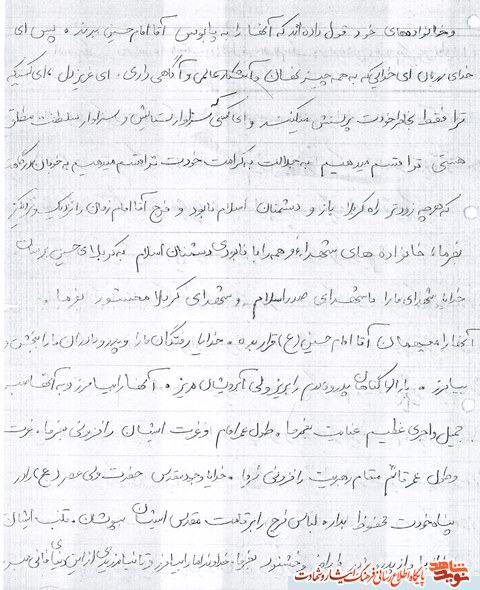 و خانواده‌های خود قول داده‌اند که آنها را به پابوس آقا امام حسین ببرند، پس ای
خدای مهربان ای خدایی که به همه چیز نهان و آشکار عالمی و آگاهی داری. ای عزیز دل، ای کسیکه
ترا فقط بخاطر خودت پرستش میکنند و ای کسی که سزاوار ستایش و سزاوار سلطنت مطلق
هستی ترا قسم میدهیم به جلالت به کرامت خودت ترا قسم میدهیم به خوبان درگاهت
که هر چه زودتر راه کربلا باز و دشمنان اسلام نابود و فرج آقا امام زمان را نزدیک و نزدیکتر
بفرما، خانواده های شهداء و همه را با نابودی دشمنان اسلام به کربلای حسین برسان
خدایا شهدای ما را با شهدای صدر اسلام و شهدای کربلا محشور بفرما.
آنها را میهمان آقا امام حسین (ع) قرار بده. خدایا رفتگان ما را و پدر و مادران ما را ببخش و
بیامرز. بار الها گناهان پدر و مادرم را بریز ولی آبرویشان مریز. آنها را بیامرز و به آنها صبر
جمیل و اجری عظیم عنایت بفرما. طول عمر امام و عزت ایشان را فزونی بفرما. عزت
و طول عمر قائم مقام رهبریت را فزونی فرما. خدایا وجود مقدس حضرت ولی عصر (عج) را در
پناه خودت محفوظ بدار، لباس فرج را بر قامت مقدس ایشان بپوشان. قلب ایشان
را راضی و خشنود بفرما. خداوندا ما را بیامرز و تا نیامرزیدی از این دنیای فانی مبر
نوید شاهد
پایگاه اطلاع رسانی فرهنگ ایثار و شهادت